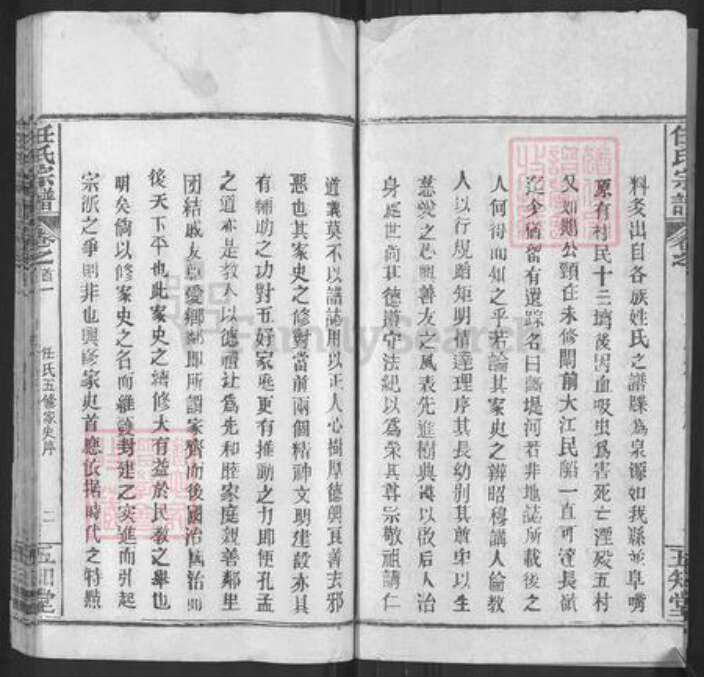 任氏宗譜
卷之
五知堂
料多出自各族姓氏之譜牒為泉源如我縣並阜嘴
原有村民十三塆後因血吸虫為害死亡湮殁五村
又如鄭公頸在未修閘前大江民船一直可達長嶺
迄今猶留有遺踪名曰斷堤河若非地誌所載後之
人何得而知之乎若論其家史之辦昭穆講人倫教
人以行規蹈矩明情達理序其長幼別其尊卑以生
慈愛之心與善友之風表先進樹典謨以啟后人治
身處世尚其德遵守法紀以為榮其尊宗敬祖講仁
道義莫不以譜誌用以正人心樹厚德興良善去邪
惡也其家史之修對當前兩個精神文明建設亦具
有輔助之功對五好家庭更有推動之力即便孔孟
之道亦是教人以德禮让為先和睦家庭親善鄰里
团結戚友以愛鄉邻即所謂家齊而後國治國治而
後天下平也此家史之續修大有益於民教之舉也
明矣倘以修家史之名而維護封建之实進而引起
宗派之争則非也興修家史首應依据時代之特點
任氏宗譜
卷之首一
任氏五修家史序
二
五知堂
FamilySearch